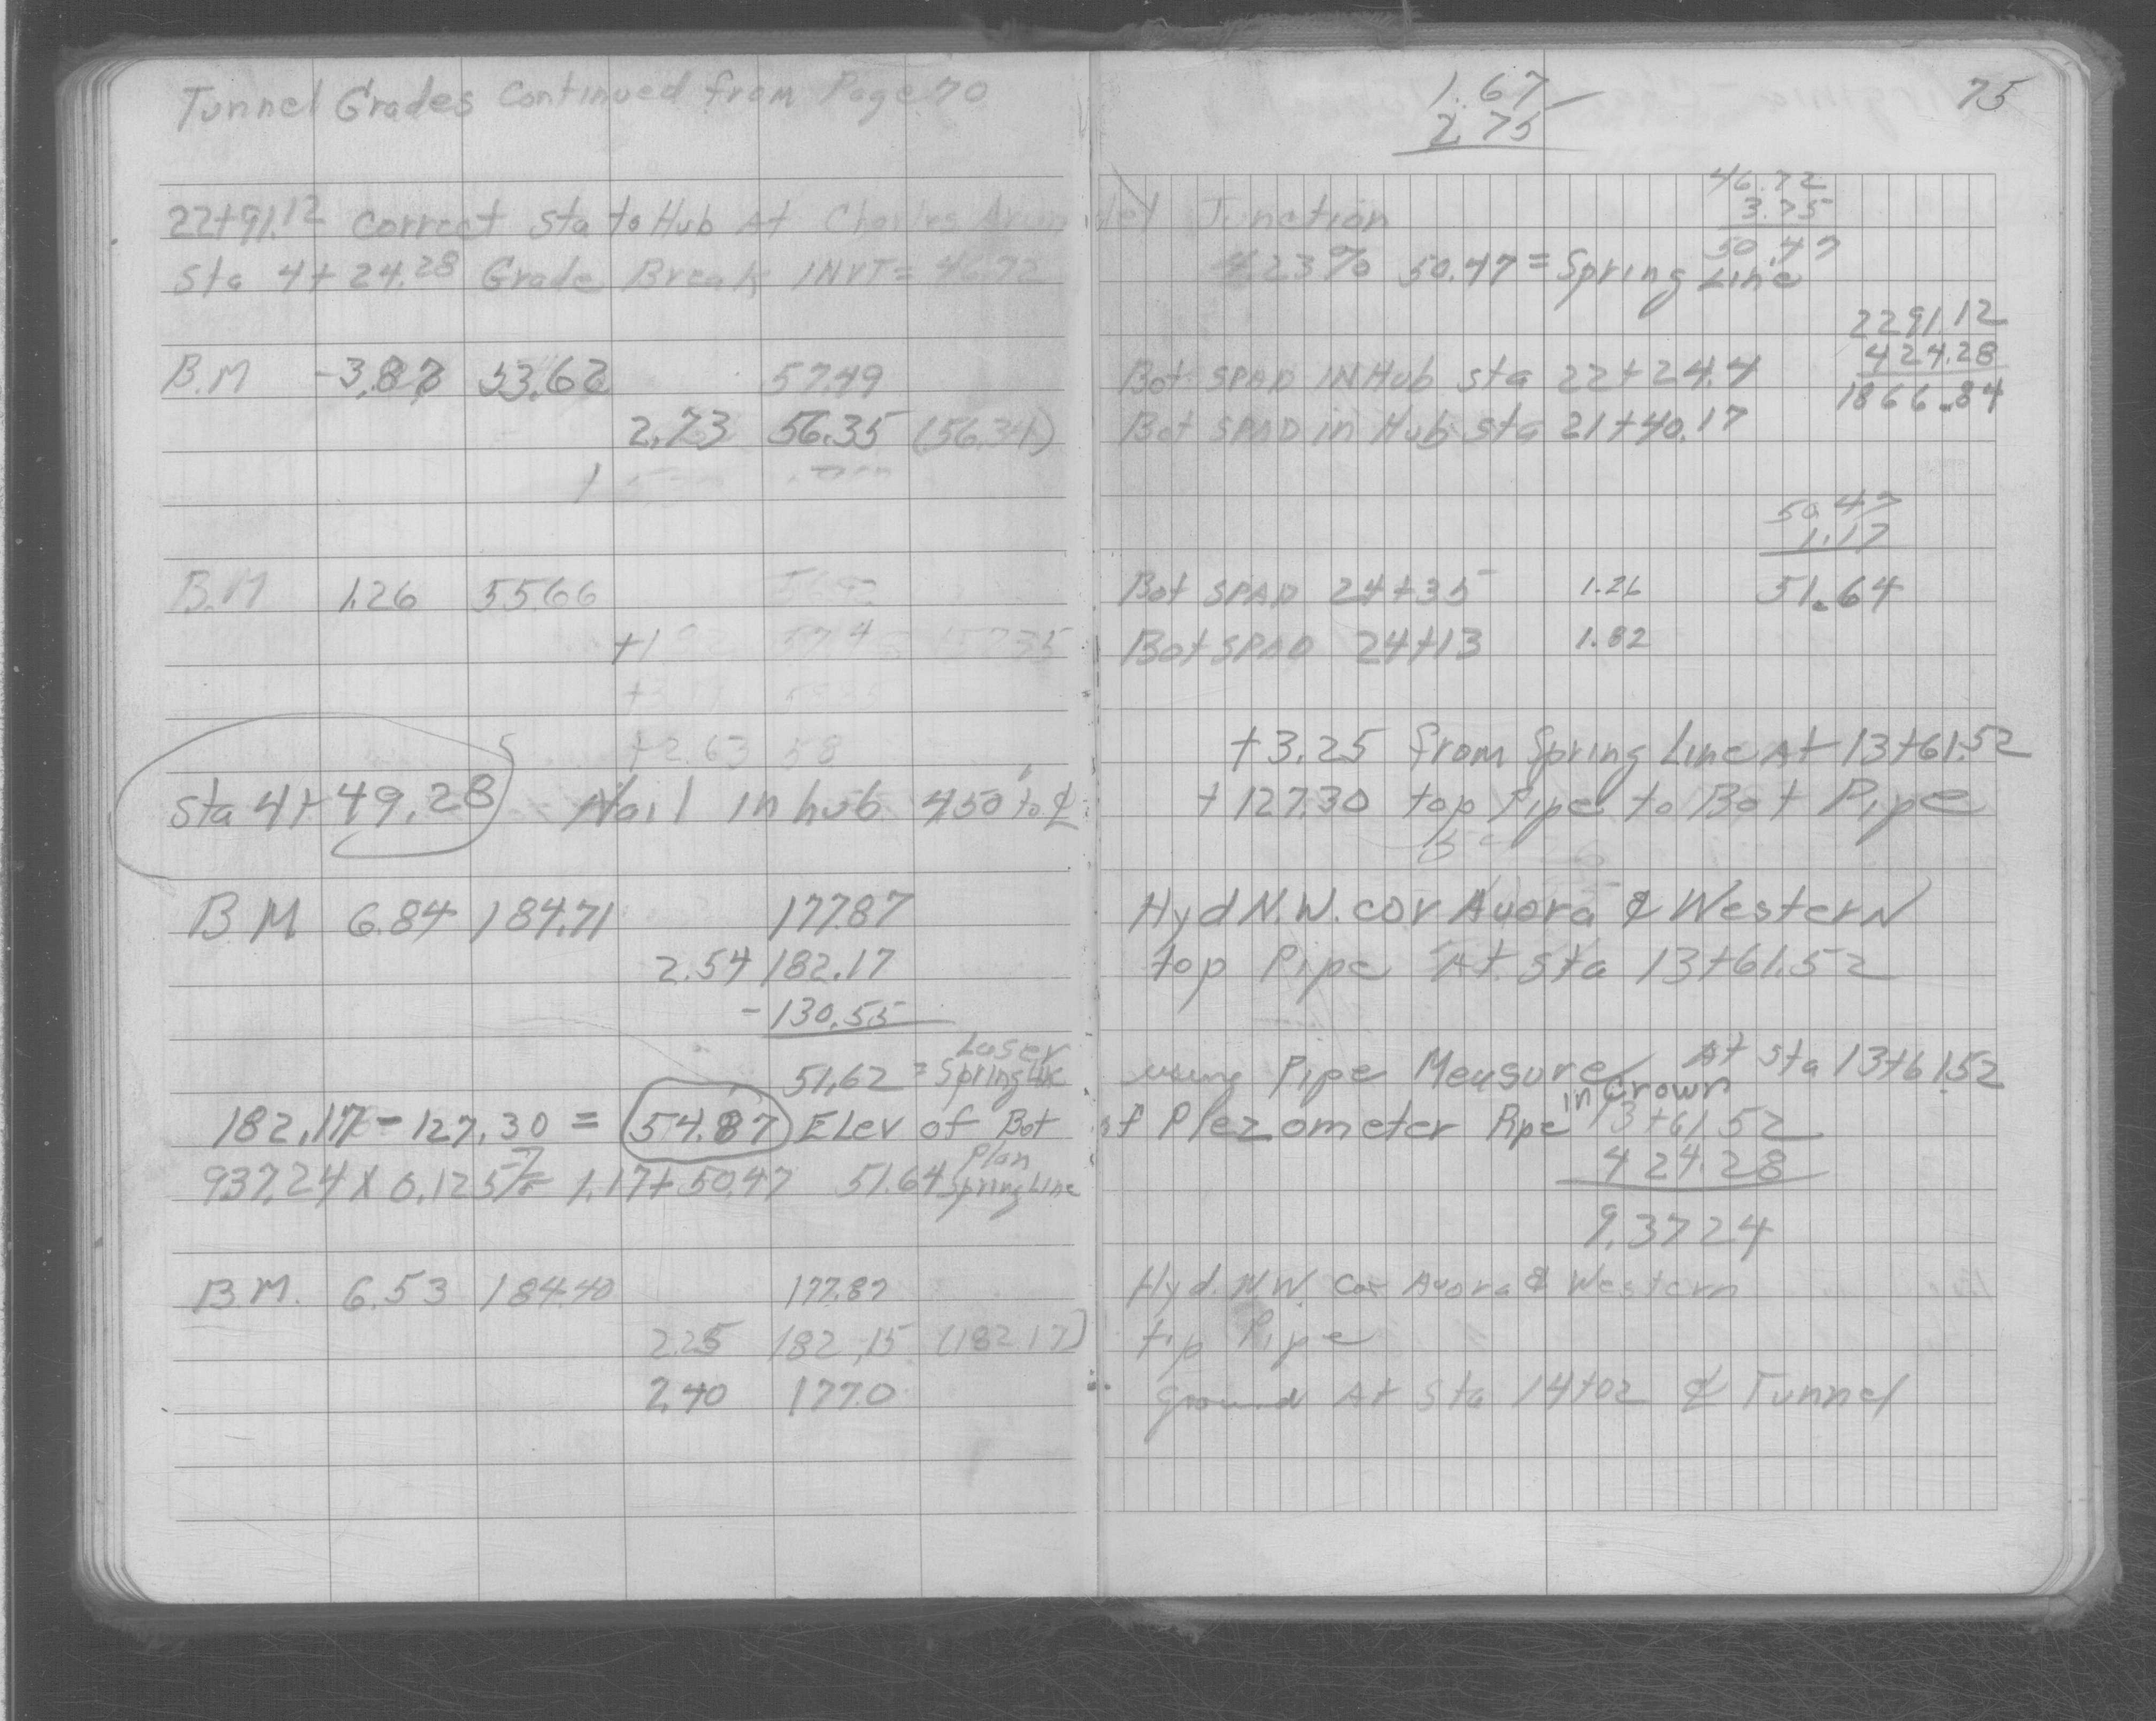 Tunnel Grades Continued from Page 70
22+91.12 Correct Sta to Hub At Charles Arun
Sta 4+24.28 Grade Break INVT = 46.72
B.M -3.87 53.62 57.49
2.73 56.35 (56.34)
B.M 1.26 55.66
+2.63 58
Sta 4+49.28 Nail in hub 4.50' to ℄
B M 6.84 184.71 177.87
2.54 182.17
-130.55
51.62 = Laser Spring Line
182.17 - 127.30 = 54.87 Elev of Bot
937.24 X 0.125% = 1.17 + 50.47 51.64 Plan Spring Line
B.M. 6.53 184.40 177.87
2.25 182.15 (182.17)
2.40 177.0
75
1.67
2.75
46.72
3.75
50.47
del Junction
50.47 = Spring Line
2291.12
424.28
1866.84
Bot SPAD IN Hub Sta 22+24.4
Bot SPAD in Hub Sta 21+40.17
50.47
1.17
51.64
Bot SPAD 24+35 1.26
Bot SPAD 24+13 1.82
+3.25 from Spring Line At 13+61.52
+127.30 top Pipe to Bot Pipe
Hyd N.W. cor Auora & Western
top Pipe At Sta 13+61.52
using Pipe Measure At Sta 13+61.52
of Piezometer Pipe in Crown
13+61.52
424.28
9,37.24
Hyd. N.W. Cor Auora & Western
top Pipe
ground At Sta 14+02 ℄ Tunnel